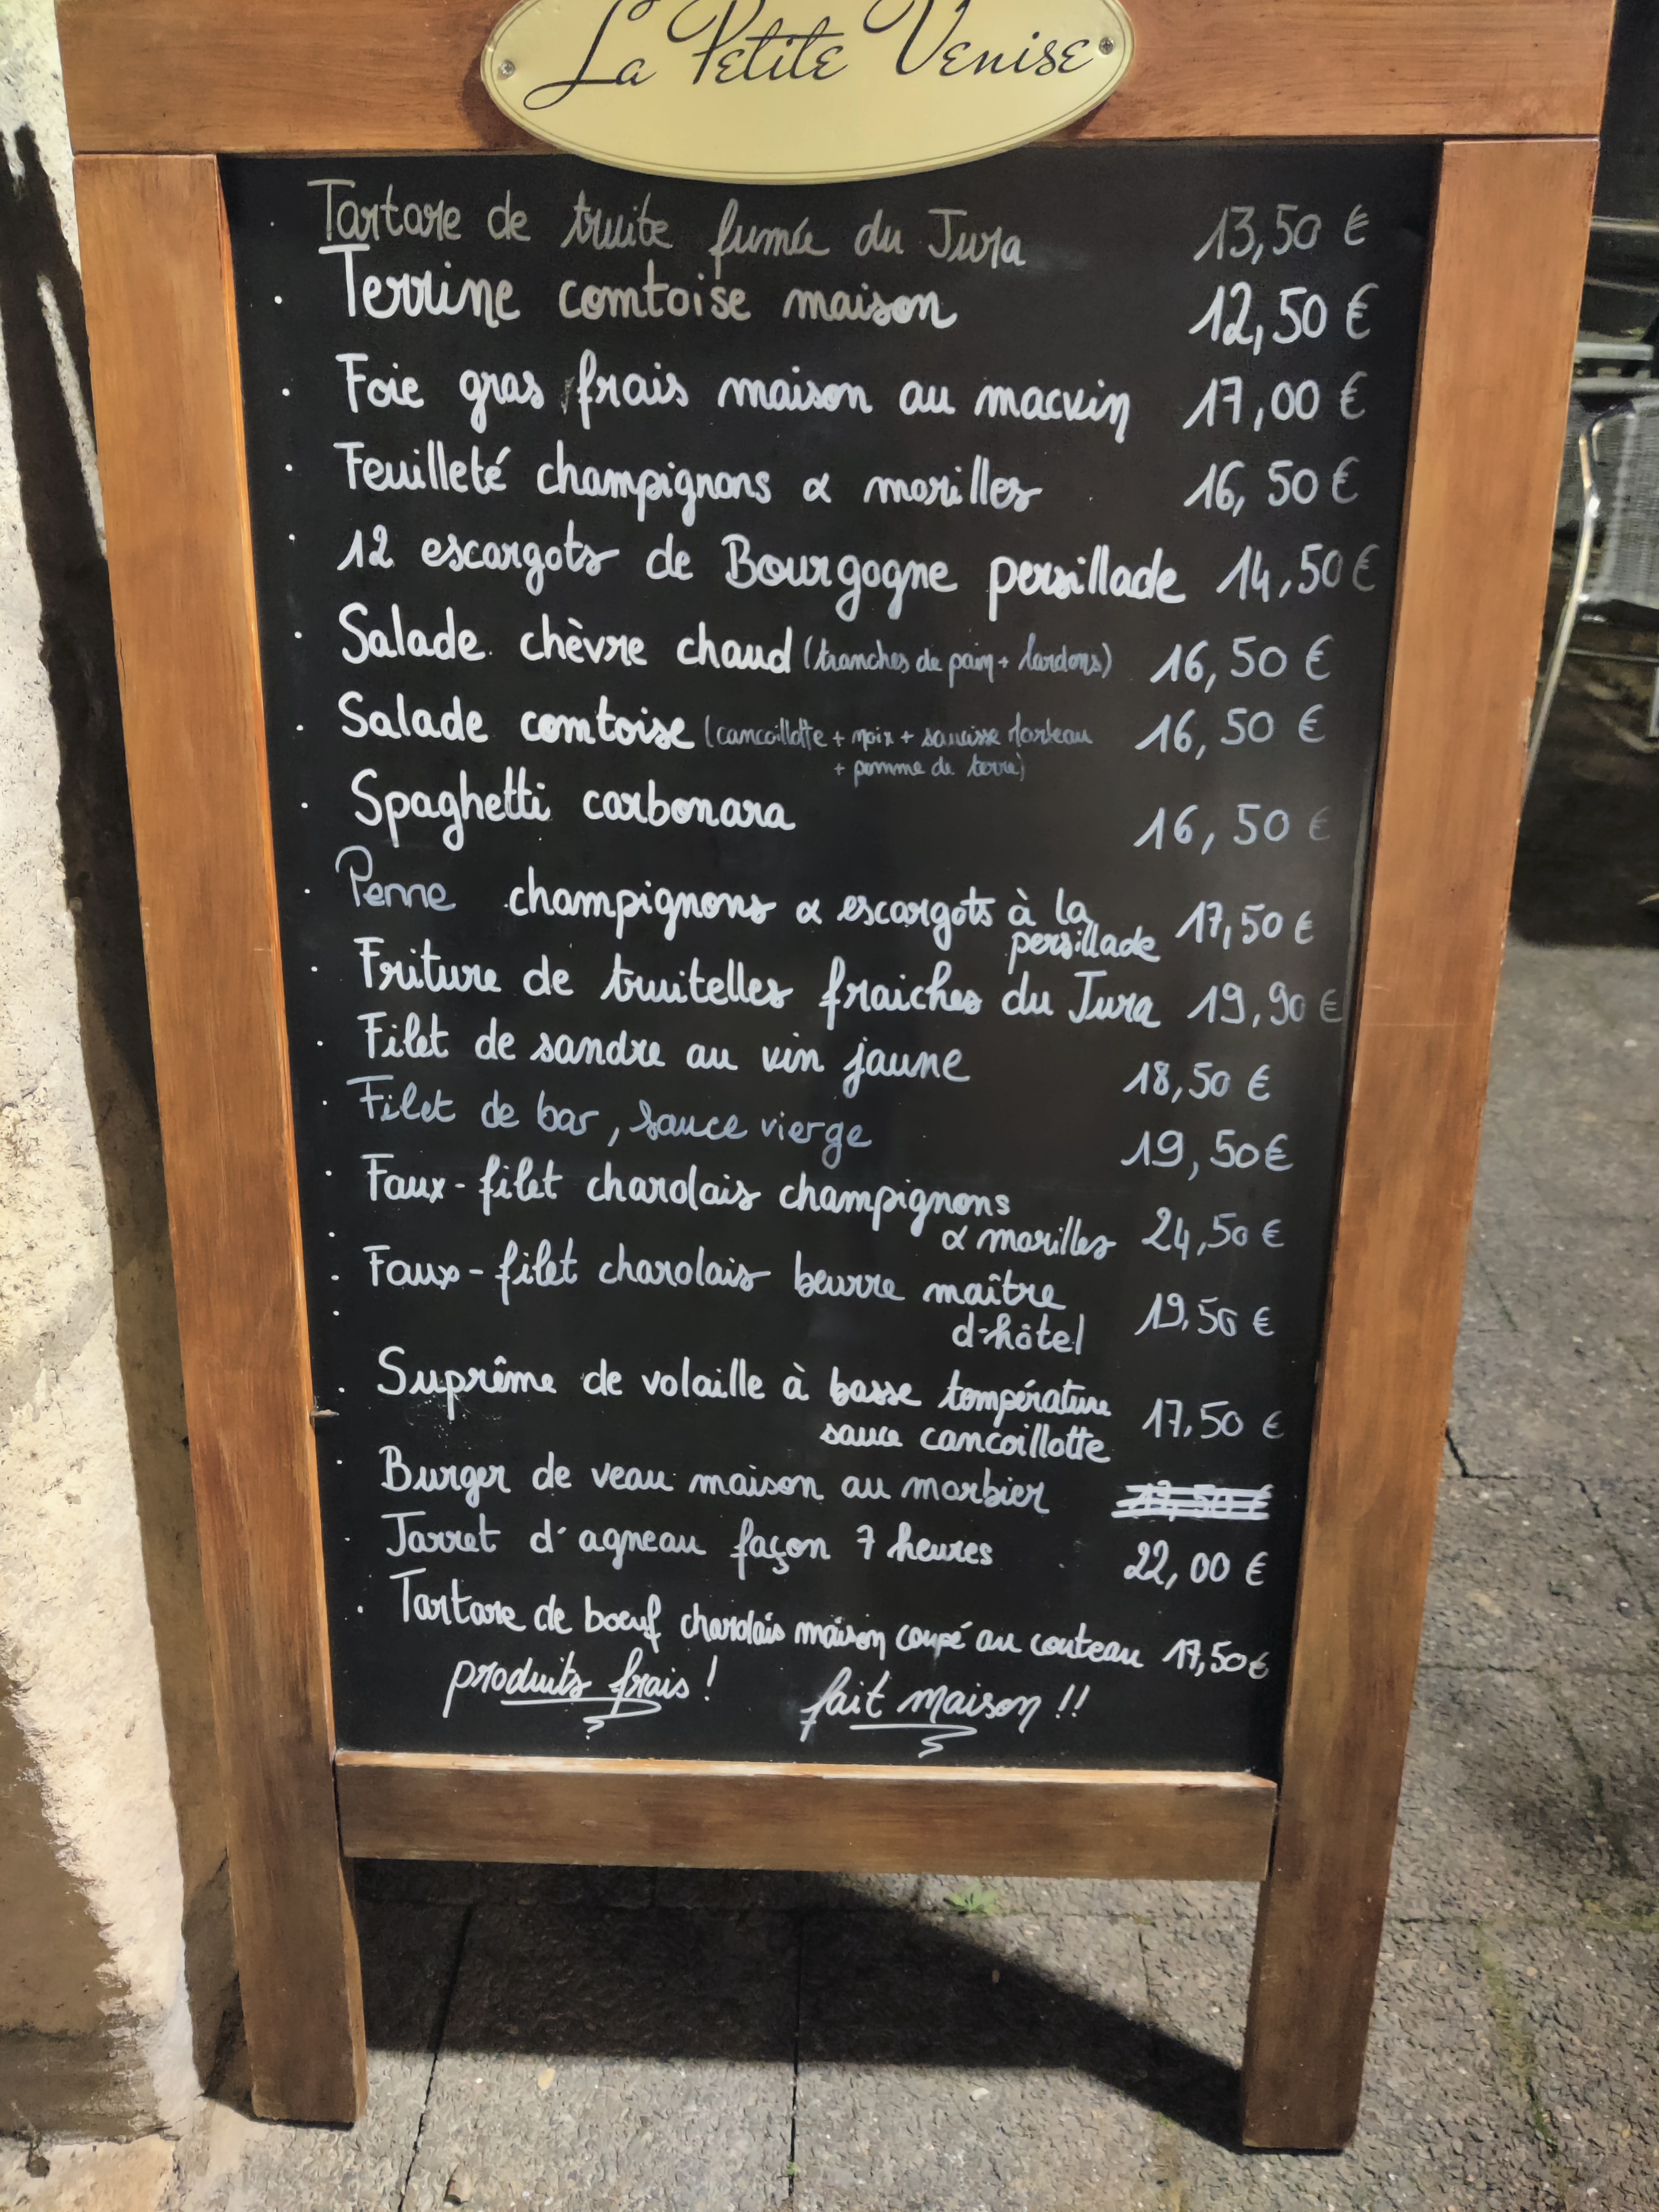 La Petite Venise
. Tartare de truite fumée du Jura 13,50 €
. Terrine comtoise maison 12,50 €
. Foie gras frais maison au macvin 17,00 €
. Feuilleté champignons & morilles 16,50 €
. 12 escargots de Bourgogne persillade 14,50 €
. Salade chèvre chaud (tranches de pain + lardons) 16,50 €
. Salade comtoise (cancoillotte + noix + saucisse Morteau 16,50 €
+ pomme de terre)
. Spaghetti carbonara 16,50 €
. Penne champignons & escargots à la 17,50 €
persillade
. Friture de truitelles fraiches du Jura 19,90 €
. Filet de sandre au vin jaune 18,50 €
. Filet de bar, sauce vierge 19,50 €
. Faux-filet charolais champignons
. & morilles 24,50 €
. Faux-filet charolais beurre maître 19,50 €
. d'hôtel
. Suprême de volaille à basse température 17,50 €
sauce cancoillotte
. Burger de veau maison au morbier
. Jarret d'agneau façon 7 heures 22,00 €
. Tartare de boeuf charolais maison coupé au couteau 17,50 €
produits frais ! fait maison !!